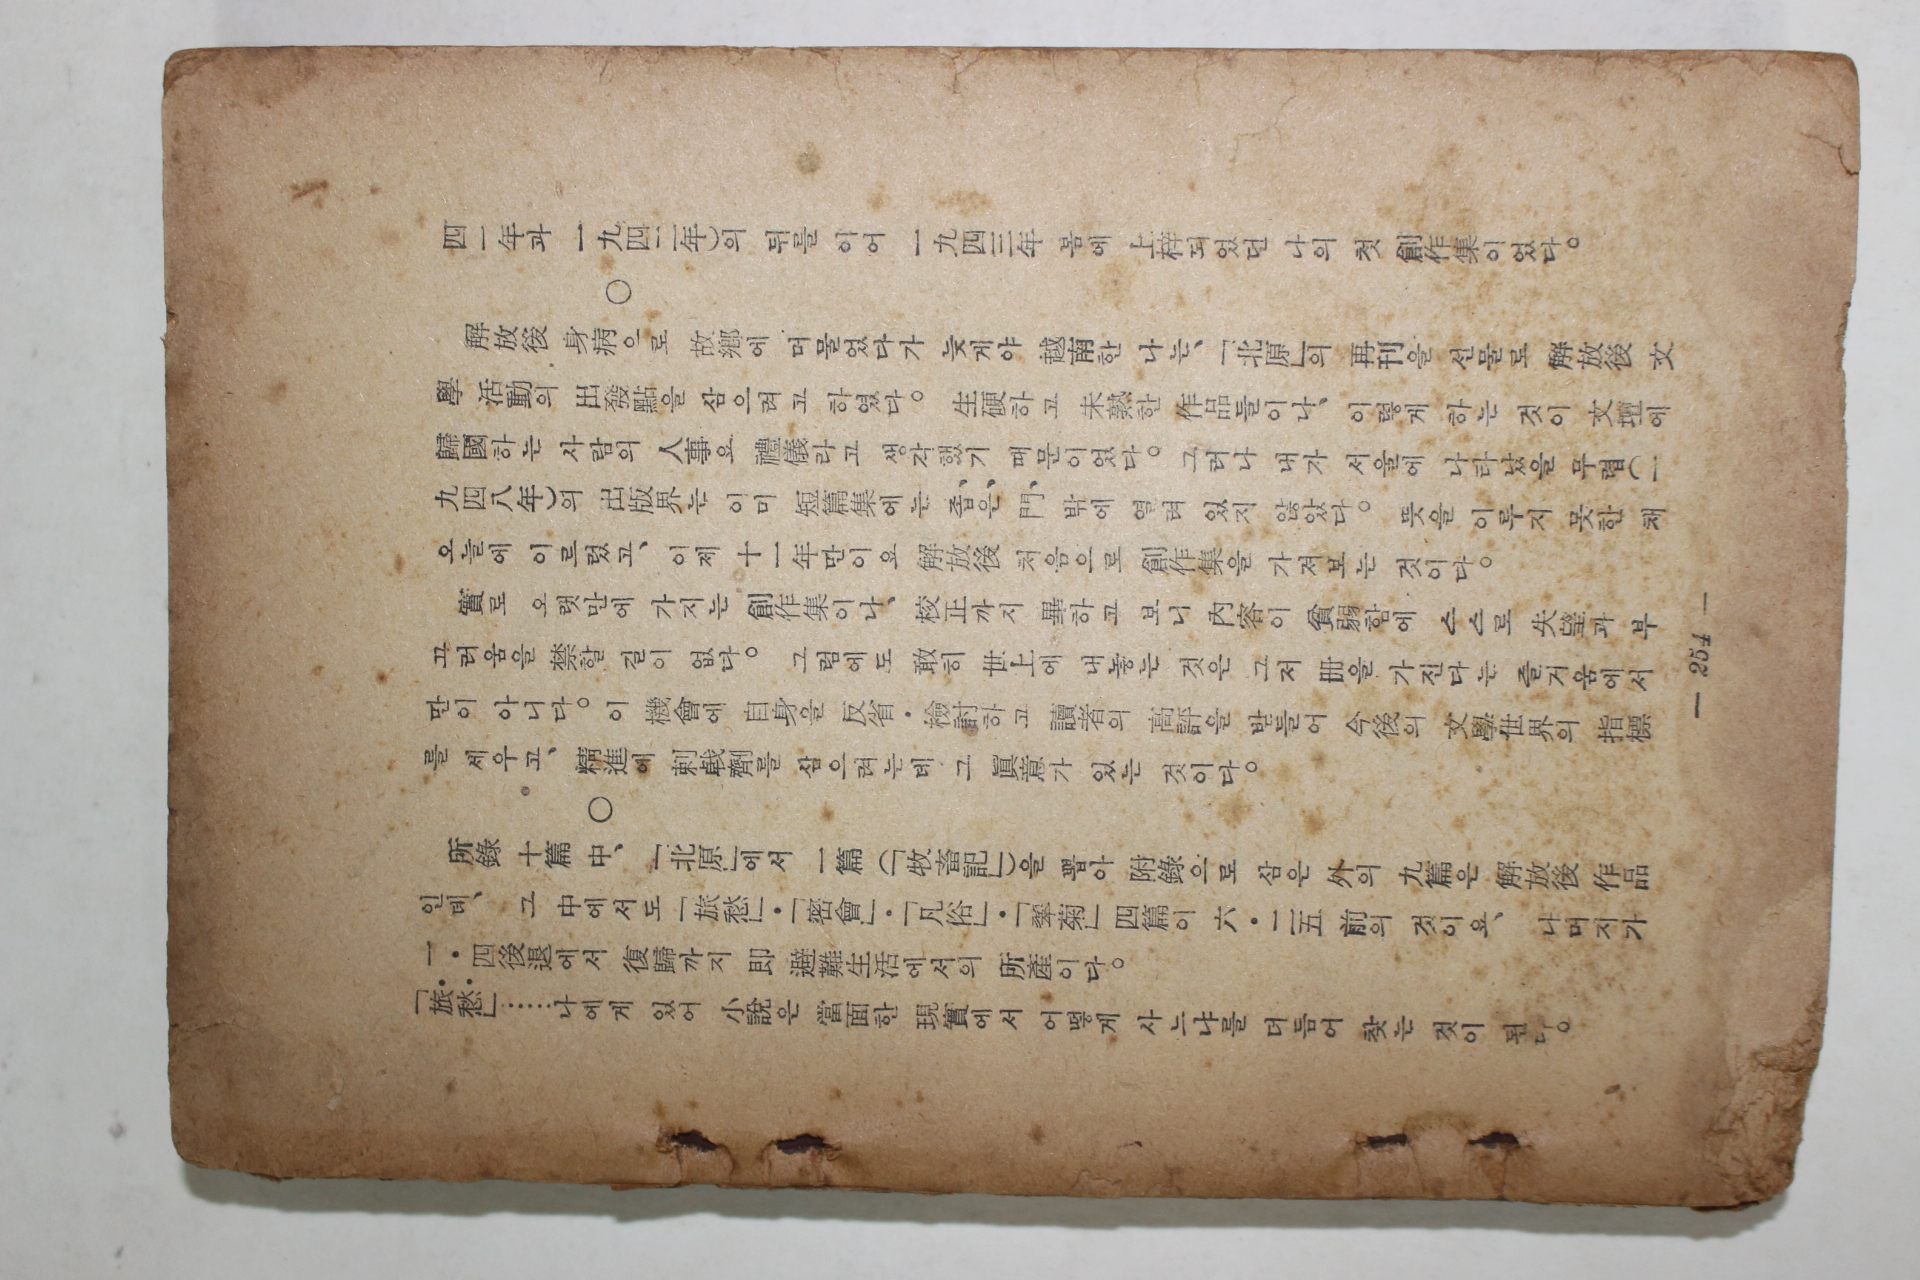 四一年과 一九四二年)의 뒤를 이어 一九四三年 봄에 上梓되었던 나의 첫 創作集이었다。
○
解放後 身病으로 故鄕에 머물었다가 늦게야 越南한 나는、「北原」의 再刊을 선물로 解放後 文
學 活動의 出發點을 삼으려고 하였다。 生硬하고 未熟한 作品들이나、 이렇게 하는 것이 文壇에
歸國하는 사람의 人事요 禮儀라고 생각했기 때문이었다。 그러나 내가 서울에 나타났을 무렵(一
九四八年)의 出版界는 이미 短篇集에는 좁은 門 밖에 열려 있지 않았다。 뜻을 이루지 못한 채
오늘에 이르렀고、 이제 十一年만이요 解放後 처음으로 創作集을 가져보는 것이다。
實로 오랫만에 가지는 創作集이나、 校正까지 畢하고 보니 內容이 貧弱함에 스스로 失望과 부
끄러움을 禁할 길이 없다。 그럼에도 敢히 世上에 내놓는 것은 그저 冊을 가진다는 즐거움에서
만이 아니다。 이 機會에 自身을 反省・檢討하고 讀者의 高評을 받들어 今後의 文學世界의 指標
를 세우고、 精進에 刺戟劑를 삼으려는데 그 眞意가 있는 것이다。
○
所錄 十篇 中、「北原」에서 一篇(「牧畜記」)을 뽑아 附錄으로 삼은 外의 九篇은 解放後 作品
인데、 그 中에서도「旅愁」・「密會」・「凡俗」・「翠菊」四篇이 六・二五 前의 것이요、 나머지가
一・四後退에서 復歸까지 即 避難生活에서의 所產이다。
「旅愁」……나에게 있어 小說은 當面한 現實에서 어떻게 사느냐를 더듬어 찾는 것이 된다。
— 254 —